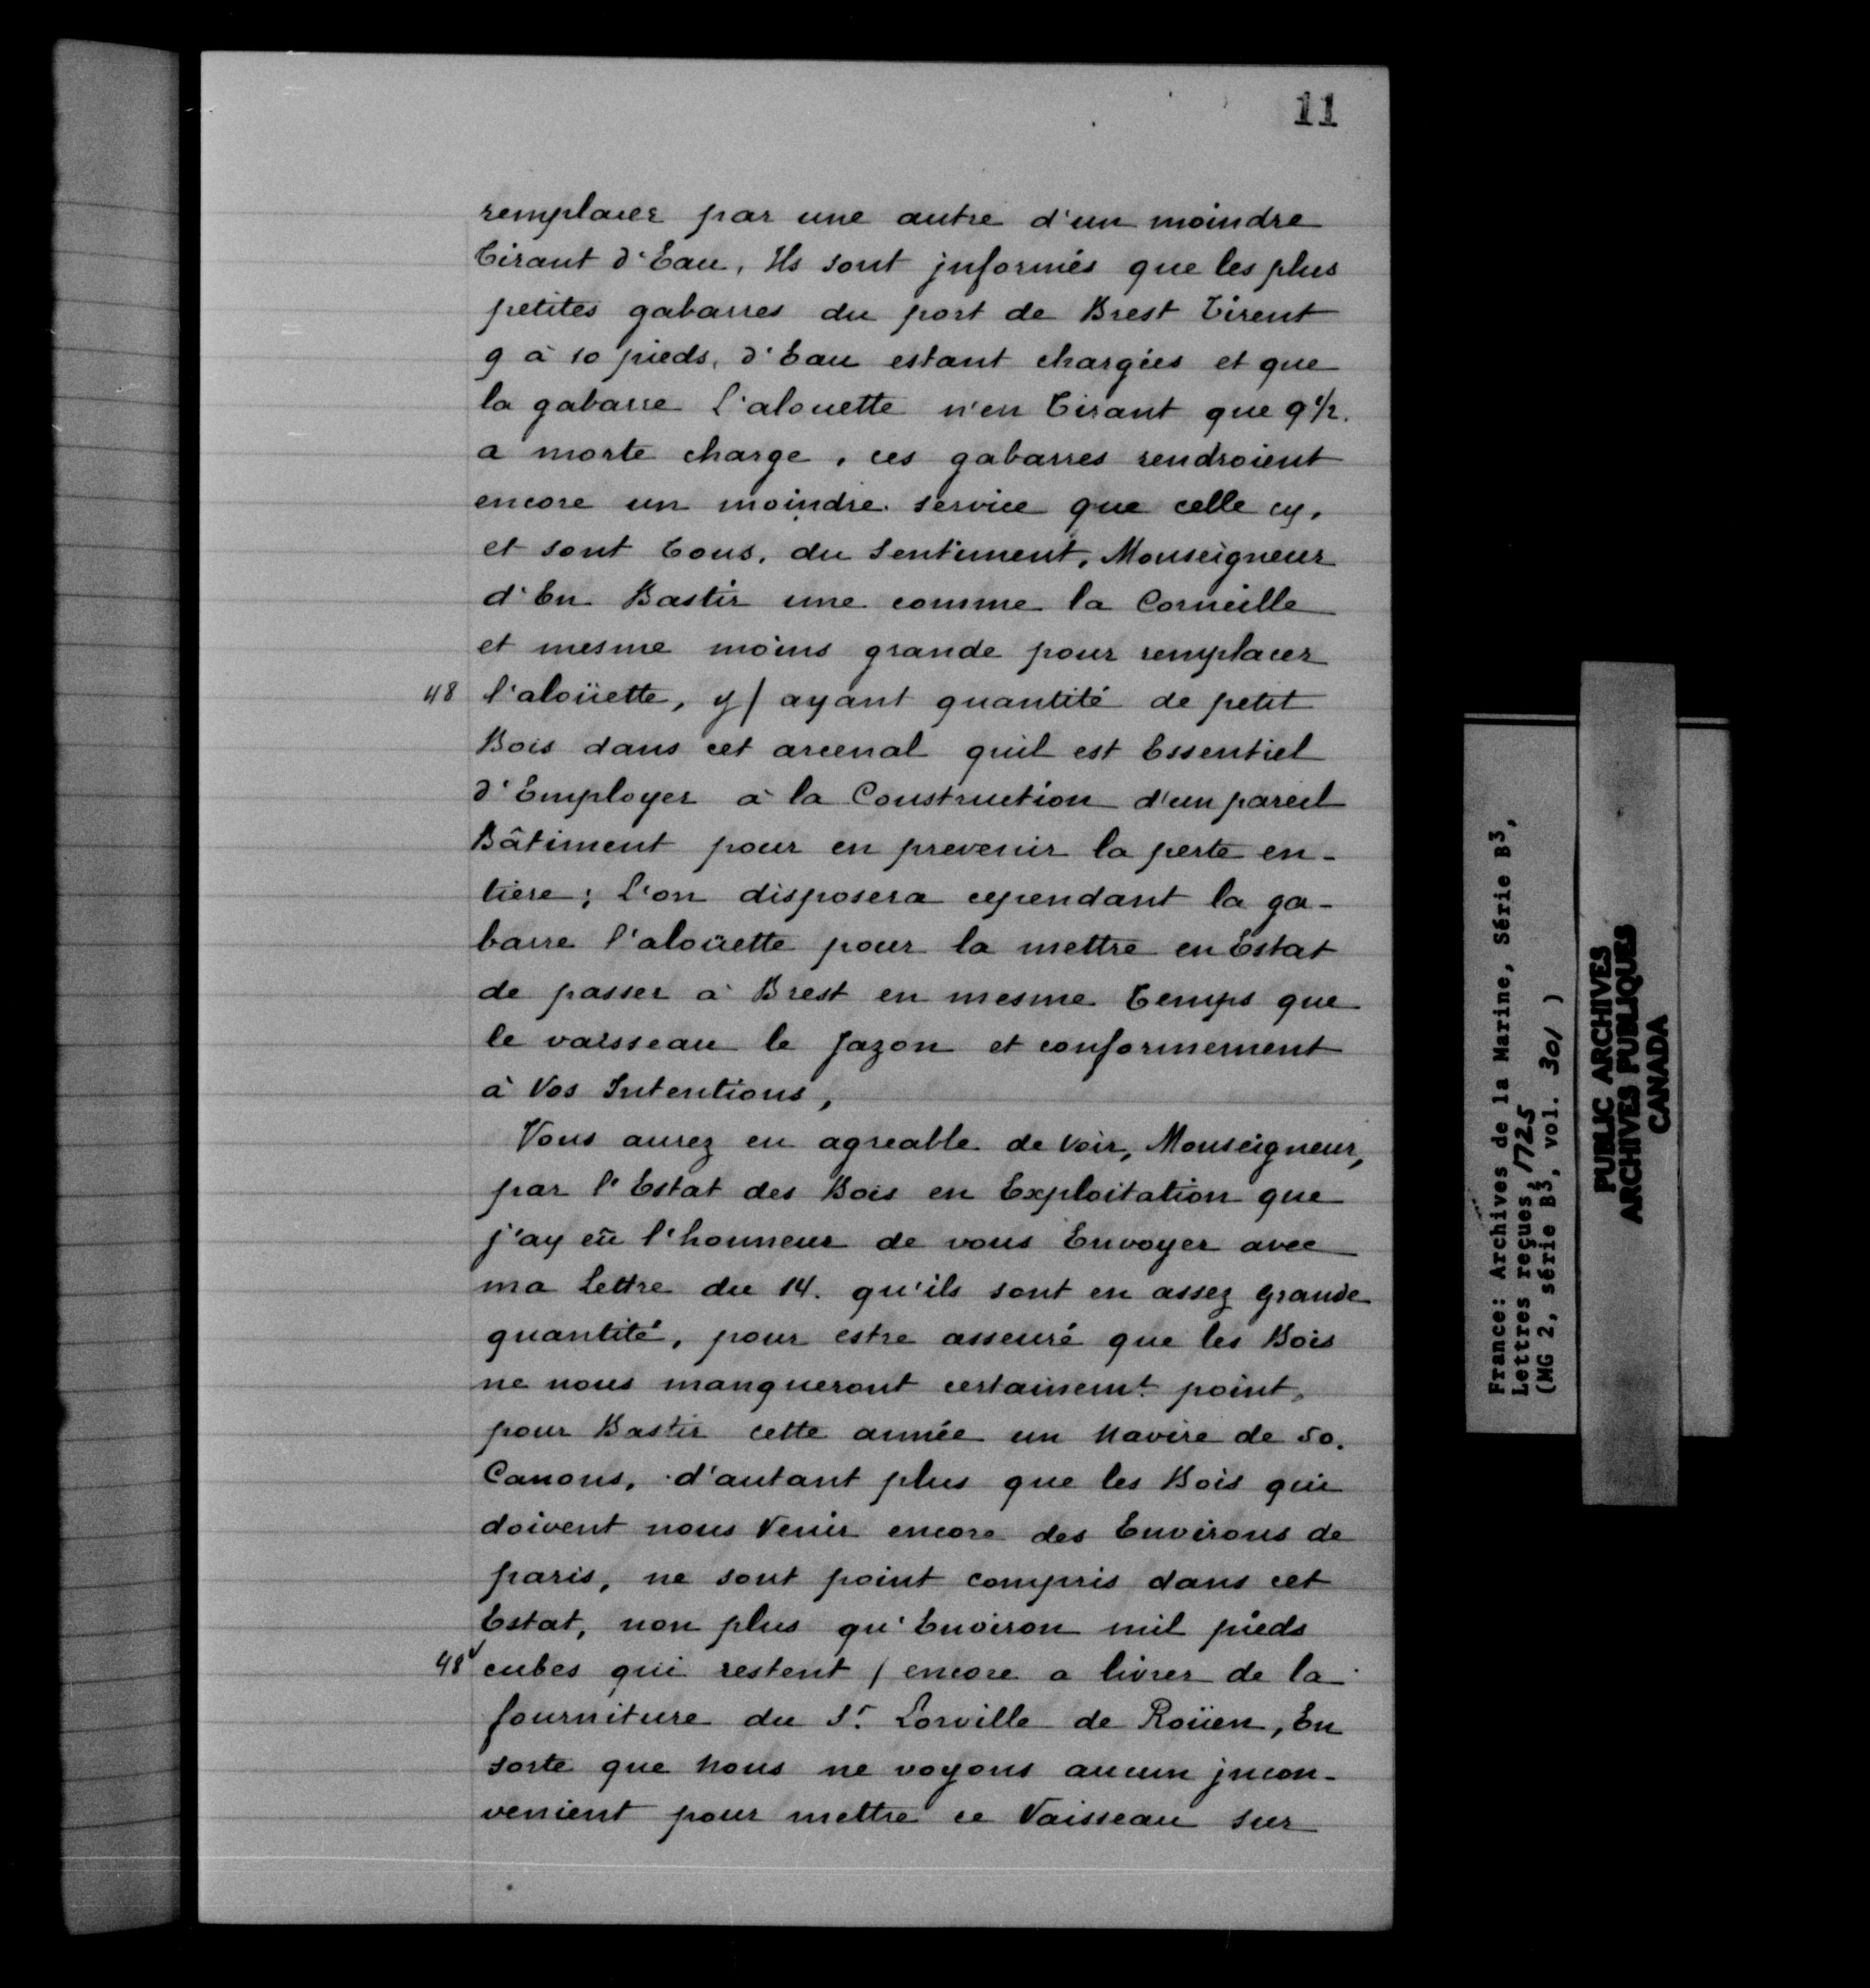 11
remplacer par une autre d'un moindre
Tirant d'Eau, Ils sont jnformés que les plus
petites gabarres du port de Brest Tirent
9 à 10 pieds, d'Eau estant chargées et que
la gabarre L'alouette n'en Tirant que 9 1/2.
a morte charge, ces gabarres rendroient
encore un moindre service que celle cy,
et sont Tous, du Sentiment, Monseigneur
d'En Bastir une comme la Corneille
et mesme moins grande pour remplacer
48 l'aloüette, y / ayant quantité de petit
Bois dans cet arcenal qu'il est Essentiel
d'Employer à la Construction d'un pareil
Bâtiment pour en prevenir la perte en-
tiere; L'on disposera cependant la ga-
barre l'aloüette pour la mettre en Estat
de passer à Brest en mesme Temps que
le vaisseau le Jazon et conformement
à Vos Intentions,
Vous aurez eu agreable de Voir, Monseigneur,
par l'Estat des Bois en Exploitation que
j'ay eû l'honneur de vous Envoyer avec
ma Lettre du 14. qu'ils sont en assez grande
quantité, pour estre asseuré que les Bois
ne nous manqueront certainemt. point,
pour Bastir cette année un Navire de 50.
Canons, d'autant plus que les Bois qui
doivent nous Venir encore des Environs de
paris, ne sont point compris dans cet
Estat, non plus qu'Environ mil pieds
48v cubes qui restent / encore a livrer de la
fourniture du Sr. Lorville de Roüen, En
sorte que Nous ne voyons aucun jncon-
venient pour mettre ce Vaisseau sur
France: Archives de la Marine, Série B3,
Lettres reçues, 1725
(MG 2, série B3, vol. 301 )
PUBLIC ARCHIVES
ARCHIVES PUBLIQUES
CANADA